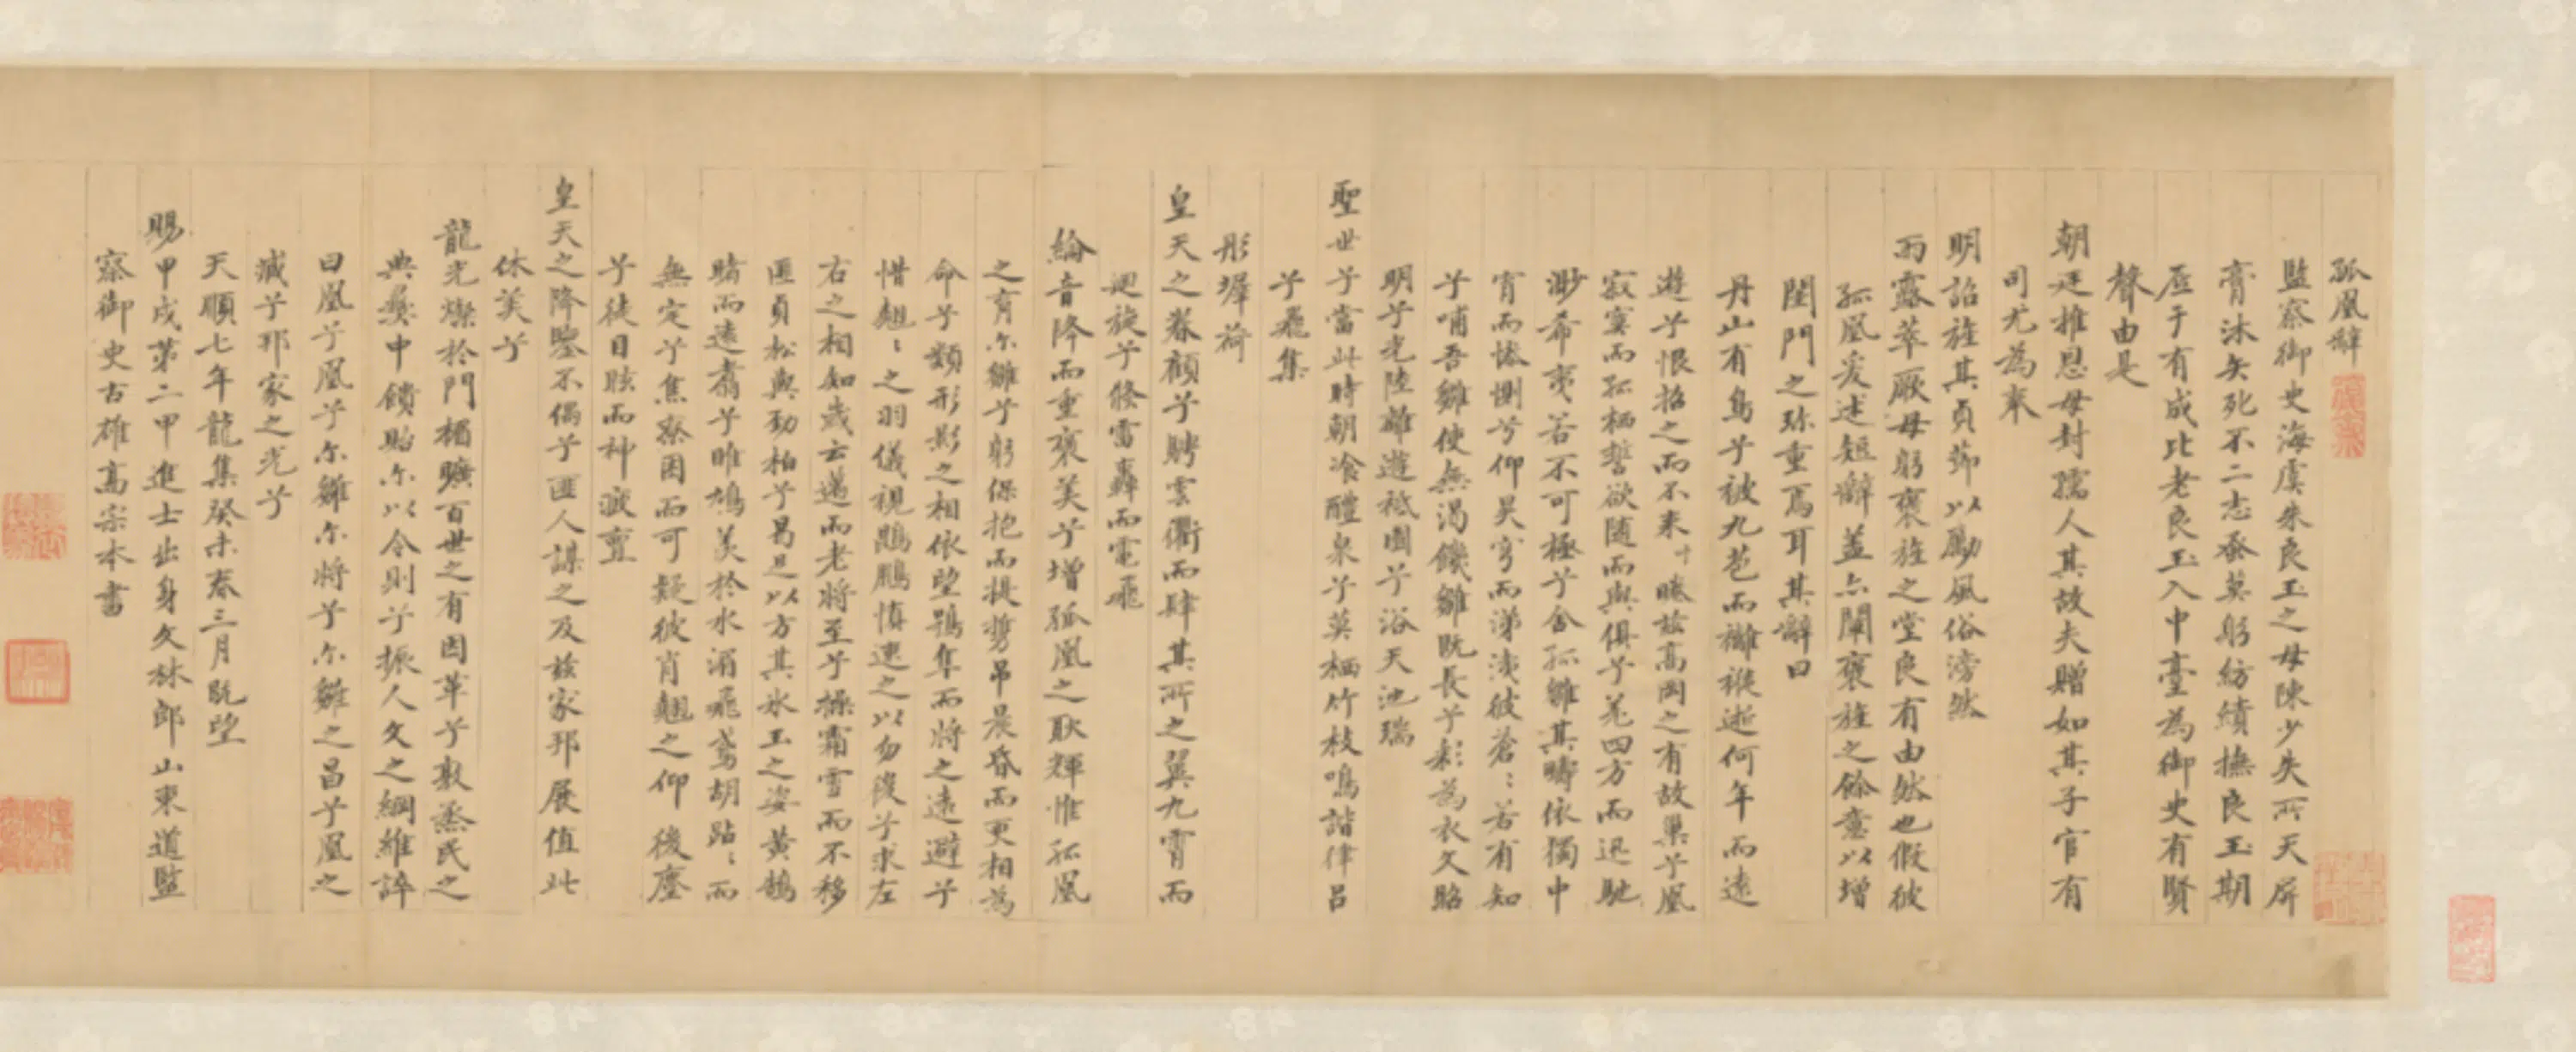 孤凰辭
監察御史海虞朱良玉之母陳少失所天屏
膏沐矢死不二志蚤莫躬紡績撫良玉期
底于有成比老良玉入中臺為御史有賢
聲由是
朝廷推恩母封孺人其故夫贈如其子官有
司尤為東
明詔旌其貞節以勵風俗滂然
雨露萃厥母躬褒旌之堂良有由然也假彼
孤凰爰述短辭蓋亦闡褒旌之餘意以增
閨門之珎重焉耳其辭曰
丹山有鳥兮被九苞而襳褷逝何年而遠
遊兮恨招之而不來睠茲高岡之有故巢兮凰
寂寞而孤栖誓欲随而與俱兮羌四方而迅馳
渺希夷若不可極兮舍孤雛其疇依獨中
宵而惨惻兮仰昊穹而涕洟彼蒼〻若有知
兮哺吾雛使無渴饑雛既長兮彩為衣文昭
明兮光陸離遊袛園兮浴天池瑞
聖世兮當此時朝飡醴泉兮莫栖竹枝鳴諧律呂
兮飛集
彤墀荷
皇天之眷顧兮騁雲衢而肆其所之翼九霄而
迴旋兮倐雷轟而電飛
綸音降而重褒美兮增孤凰之耿輝惟孤凰
之育尔雛兮躬保抱而提剪吊晨昏而更相為
命兮顧形影之相依望鴞隼而將之遠避兮
惜翹〻之羽儀視鵰鵬慎逐之以勿復兮求左
右之相如歲云邁而老將至兮操霜雪而不移
匪貞松與勁柏兮曷足以方其氷玉之姿黄鵠
睹而遠翥兮睢鳩美於水湄飛鳶胡跕〻而
無定兮焦寮困而可疑彼肖翹之仰後塵
兮徒目眩而神疲亶
皇天之降鑒不偶兮匪人謀之及茲家邦展值此
休美兮
龍光燦於門楣曠百世之有因革兮敦烝民之
典彜中饋貽尔以令則兮振人文之綱維誶
曰凰兮凰兮尔雛尔將兮尔雛之昌兮凰之
臧兮邦家之光兮
天順七年龍集癸未春三月既望
賜甲戌第二甲進士出身文林郎山東道監
察御史古雄高宗本書